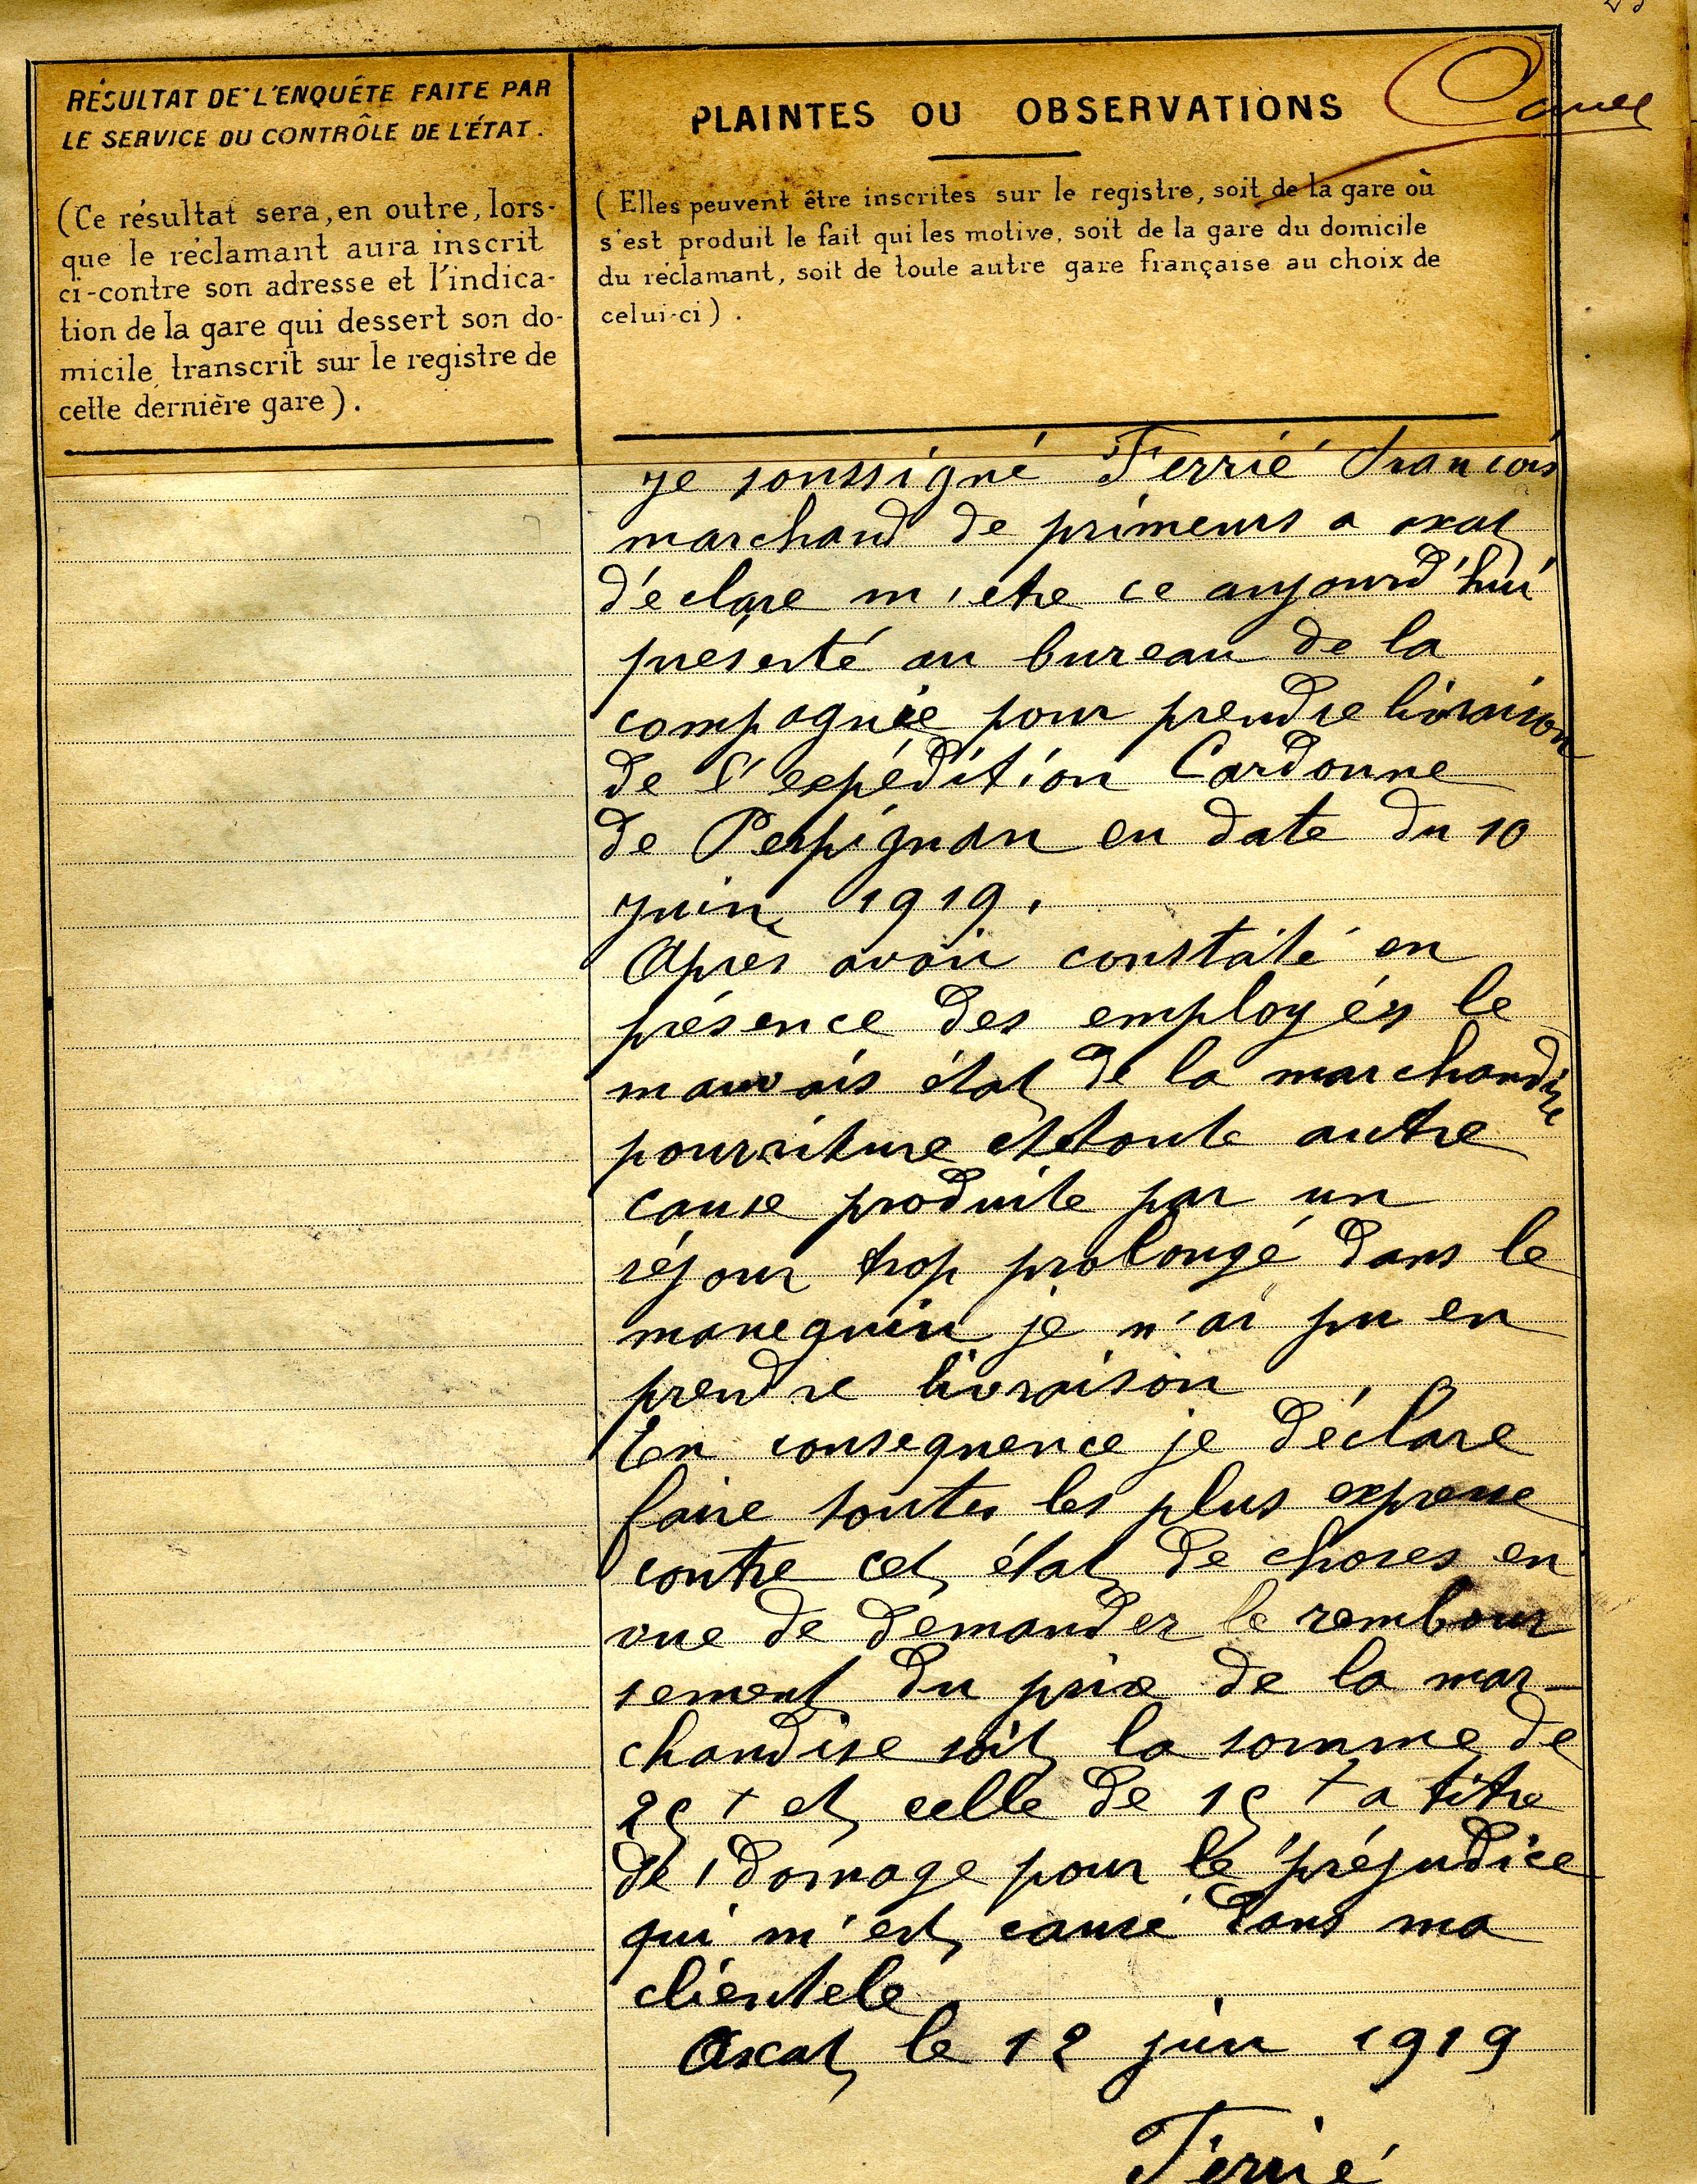 RÉSULTAT DE L'ENQUÊTE FAITE PAR
LE SERVICE DU CONTRÔLE DE L'ÉTAT.
(Ce résultat sera, en outre, lors-
que le réclamant aura inscrit
ci-contre son adresse et l'indica-
tion de la gare qui dessert son do-
micile, transcrit sur le registre de
cette dernière gare).
PLAINTES OU OBSERVATIONS
(Elles peuvent être inscrites sur le registre, soit de la gare où
s'est produit le fait qui les motive, soit de la gare du domicile
du réclamant, soit de toute autre gare française au choix de
celui-ci).
Je soussigné Ferrié François
marchand de primeurs a axat
déclare m'etre ce aujourd'hui
présenté au bureau de la
compagnie pour prendre livraison
de l'expédition Cardonne
de Perpignan en date du 10
juin 1919.
Après avoir constaté en
présence des employés le
mauvais état de la marchandise
pourriture et toute autre
cause produite par un
séjour trop prolongé dans le
manequin je n'ai pu en
prendre livraison
En consequence je déclare
faire toutes les plus expresse
contre cet état de choses en
vue de demander le rembour
sement du prix de la mar-
chandise soit la somme de
25 f et celle de 15 f a titre
de domage pour le préjudice
qui m'est causé dans ma
clientele
Axat le 12 juin 1919
Ferrié